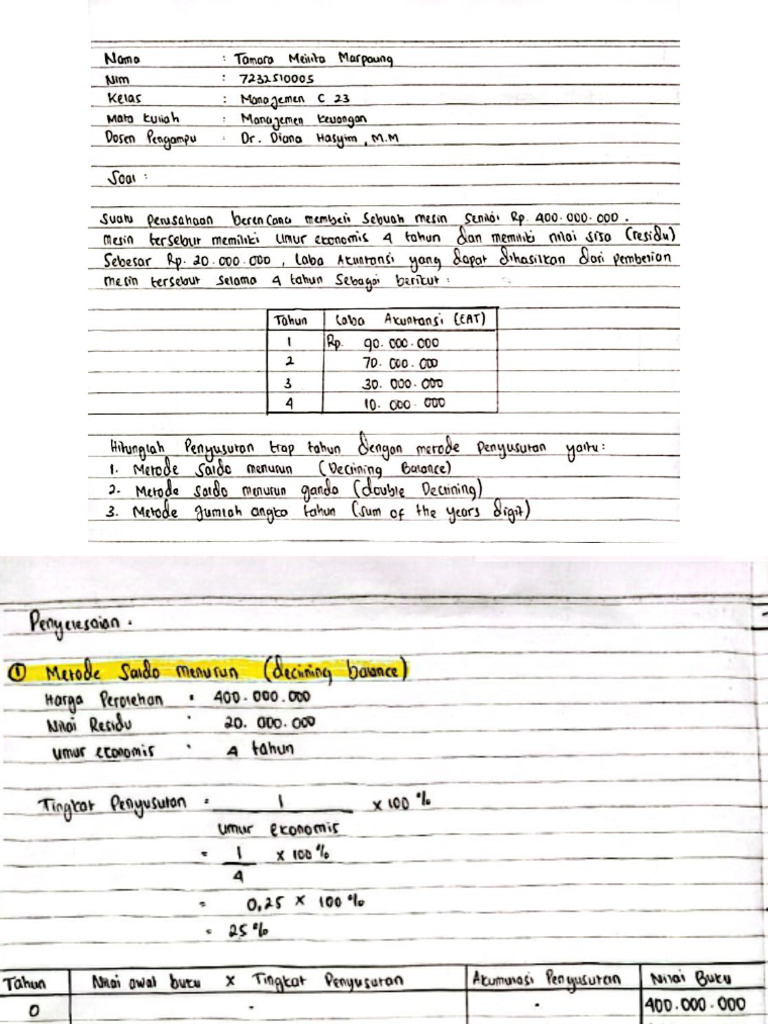 Nama : Tamara Meinta Marpaung
Nim : 7232510005
Kelas : Manajemen C 23
Mata Kuliah : Manajemen Keuangan
Dosen Pengampu : Dr. Diana Hasyim, M.M
Soal :
Suatu Perusahaan berencana membeli sebuah mesin senilai Rp. 400.000.000.
mesin tersebut memiliki umur ekonomis 4 tahun dan memiliki nilai sisa (residu)
Sebesar Rp. 20.000.000, Laba Akuntansi yang dapat dihasilkan dari pembelian
mesin tersebut selama 4 tahun sebagai berikut :
Tahun Laba Akuntansi (EAT)
1 Rp. 90.000.000
2 70.000.000
3 30.000.000
4 10.000.000
Hitunglah Penyusutan tiap tahun dengan metode penyusutan yaitu :
1. Metode Saldo menurun (Declining Balance)
2. Metode saldo menurun ganda (double Declining)
3. Metode Jumlah angka tahun (sum of the years digit)
Penyelesaian :
① Metode Saldo menurun (declining balance)
Harga Perolehan : 400.000.000
Nilai Residu : 20.000.000
umur ekonomis : 4 tahun
Tingkat Penyusutan = 1 x 100 %
umur ekonomis
= 1 x 100 %
4
= 0,25 x 100 %
= 25 %
Tahun Nilai awal buku x Tingkat Penyusutan Akumulasi Penyusutan Nilai Buku
0 - - 400.000.000